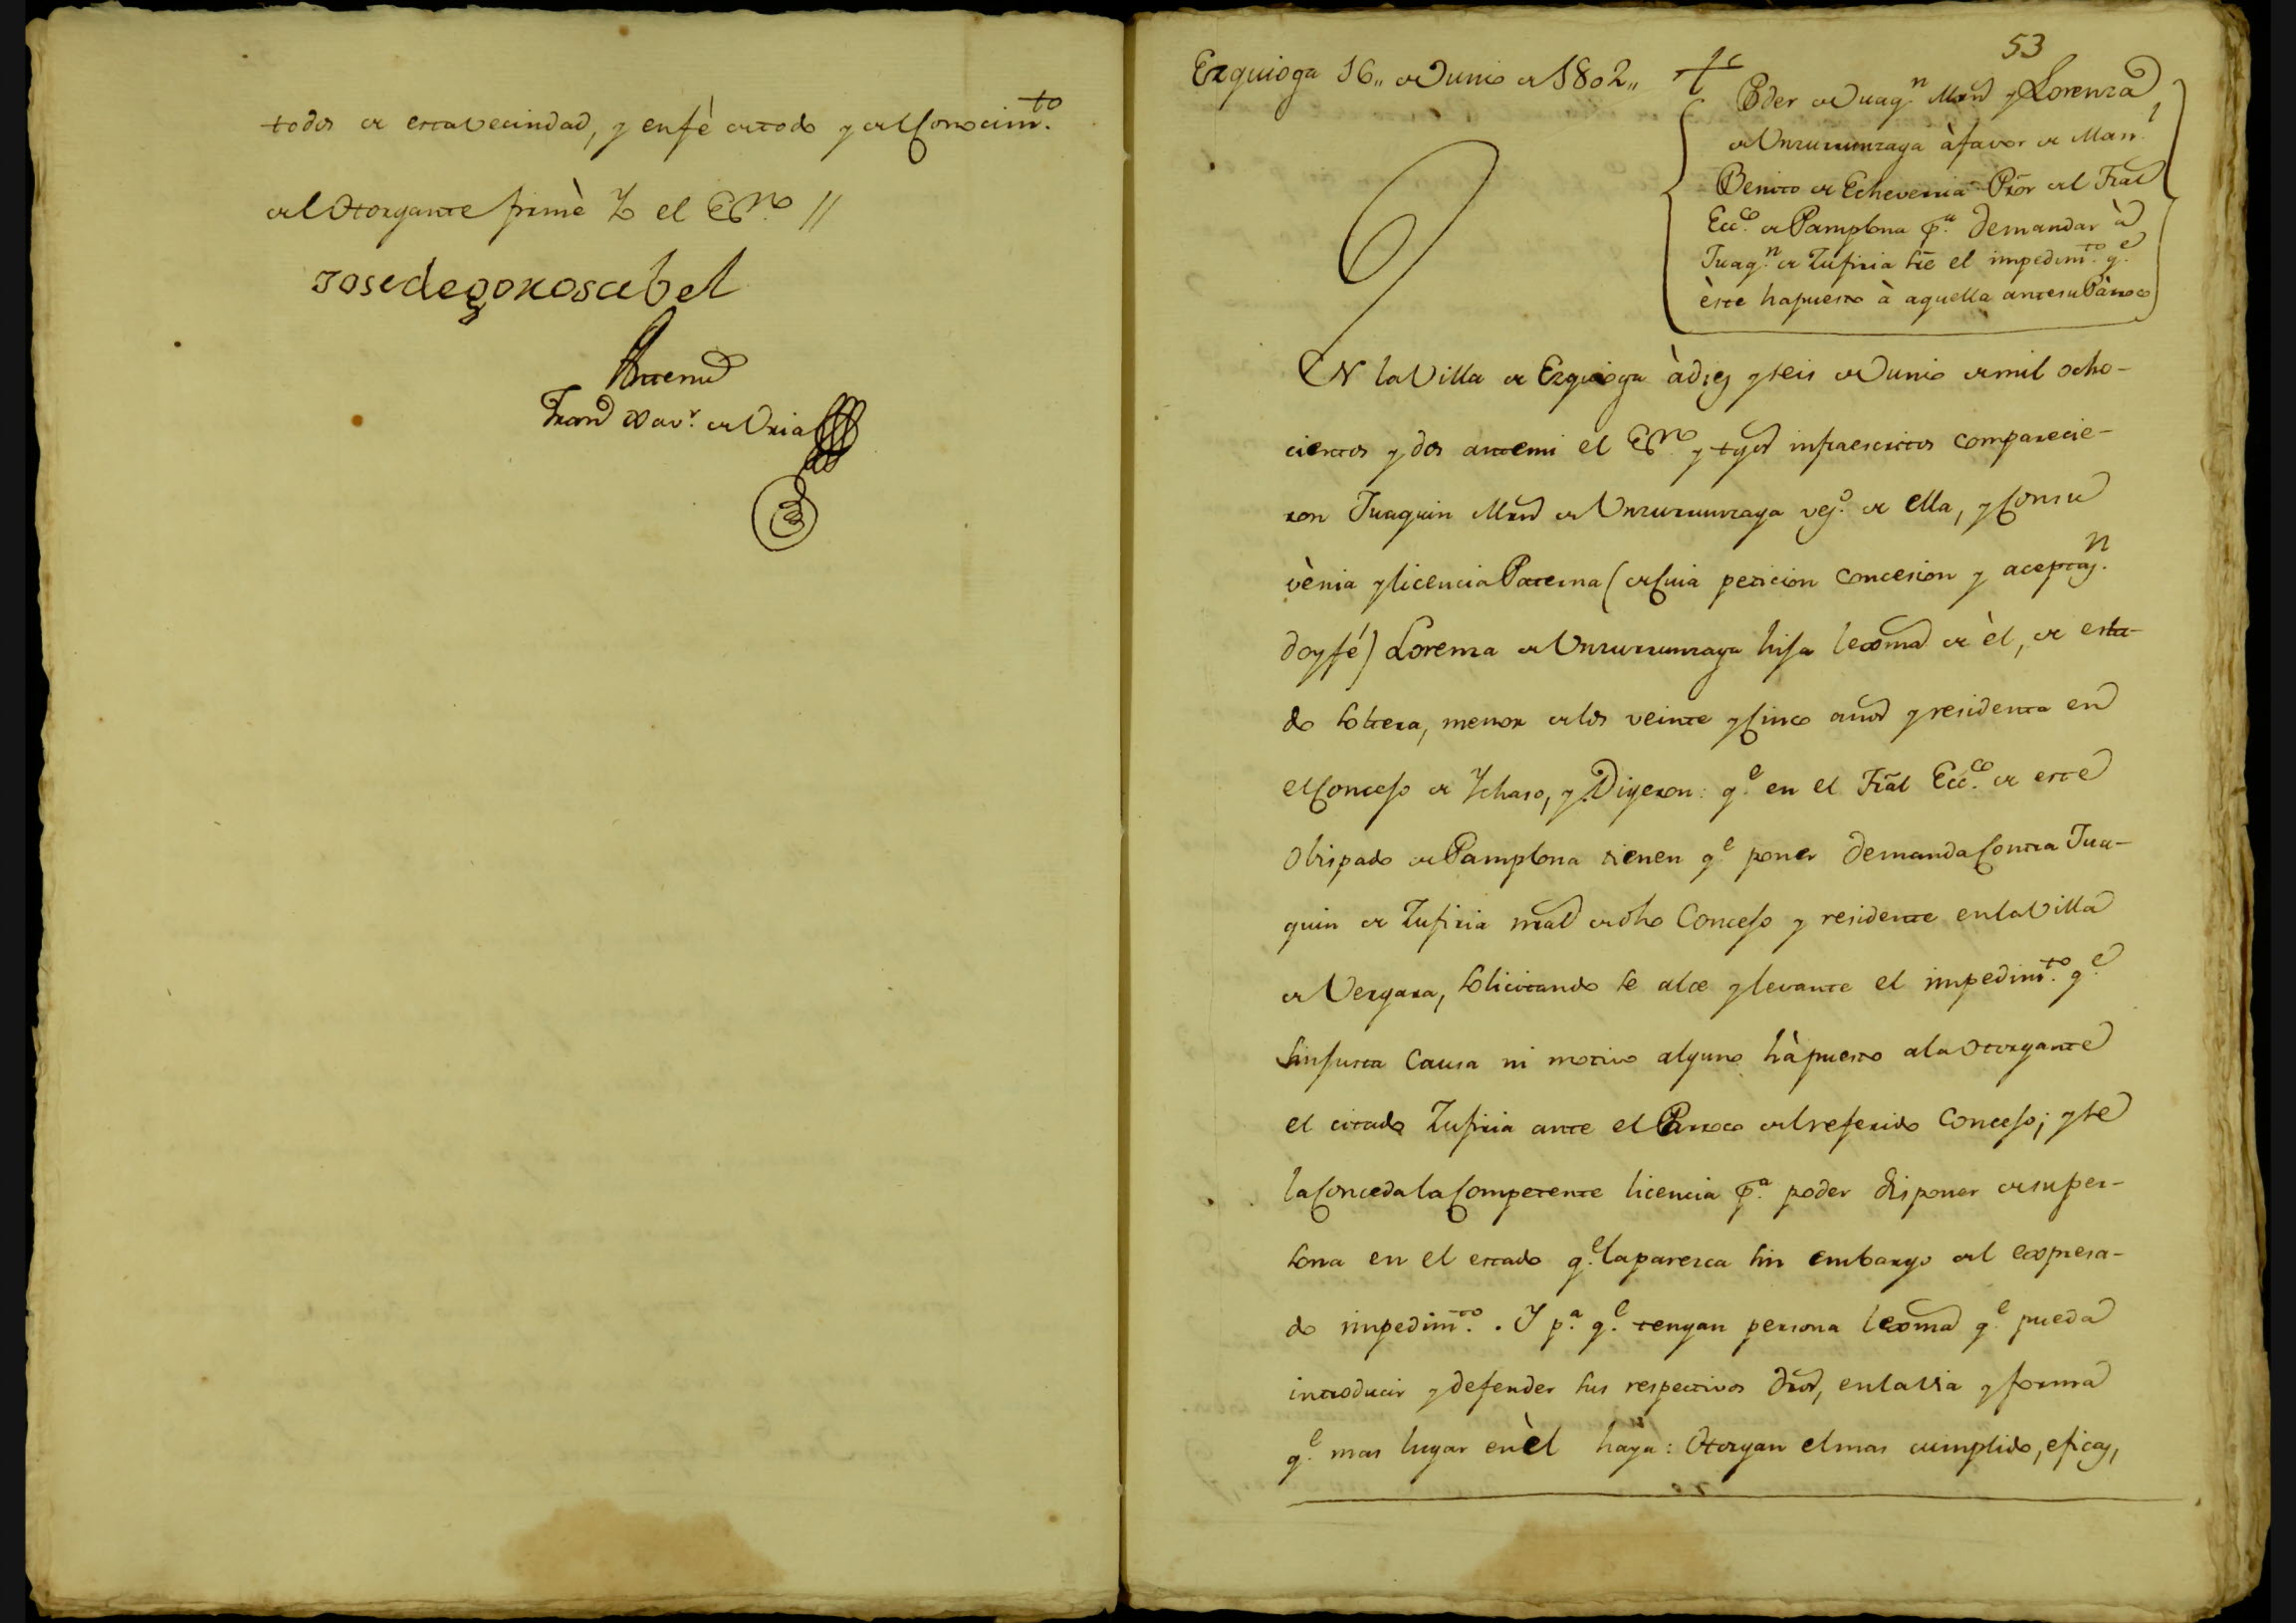 todos de esta vecindad, y en fè de todo y del Conocim.to
del Otorgante firmè Yo el Es.no //
Josedegorosabel
Antemi
Fran.co Xav.r de Uria
53
Ezquioga 16,, de Junio de 1802,,
Poder de Juaq.n Mrn y Lorenza
de Unzurrunzaga à favor de Man.l
Benito de Echeverria Pror del Tral
Ecc.co de Pamplona p.a demandar à
Juaq.n de Zufiria sre el impedim.to q.e
èste ha puesto à aquella ante su Pàrroco
EN la Villa de Ezquioga à diez y seis de Junio de mil ocho-
cientos y dos ante mi el Es.no y tgos infraescritos comparecie-
ron Juaquin Mrn de Unzurrunzaga vez.o de ella, y Con su
vènia y licencia Paterna (de Cuia peticion concesion y aceptaz.n
doy fé) Lorenza de Unzurrunzaga hija lexma de èl, de esta-
do soltera, menor de los veinte y Cinco años y residenta en
el Concejo de Ychaso, y Digeron: q.e en el Tral Ecc.co de este
Obispado de Pamplona tienen q.e poner demanda Contra Jua-
quin de Zufiria nral de dho Concejo y residente en la Villa
de Vergara, solicitando se alce y levante el impedim.to q.e
sin justa Causa ni motivo alguno hà puesto a la Otorgante
el citado Zufiria ante el Parroco del referido Concejo; y se
la Conceda la Competente licencia p.a poder disponer de su per-
sona en el estado q.e la paresca sin embargo del expresa-
do impedim.to. Y p.a q.e tengan persona lexma q.e pueda
introducir y defender sus respectivos dros, en la via y forma
q.e mas lugar en èl haya: Otorgan el mas cumplido, eficaz,